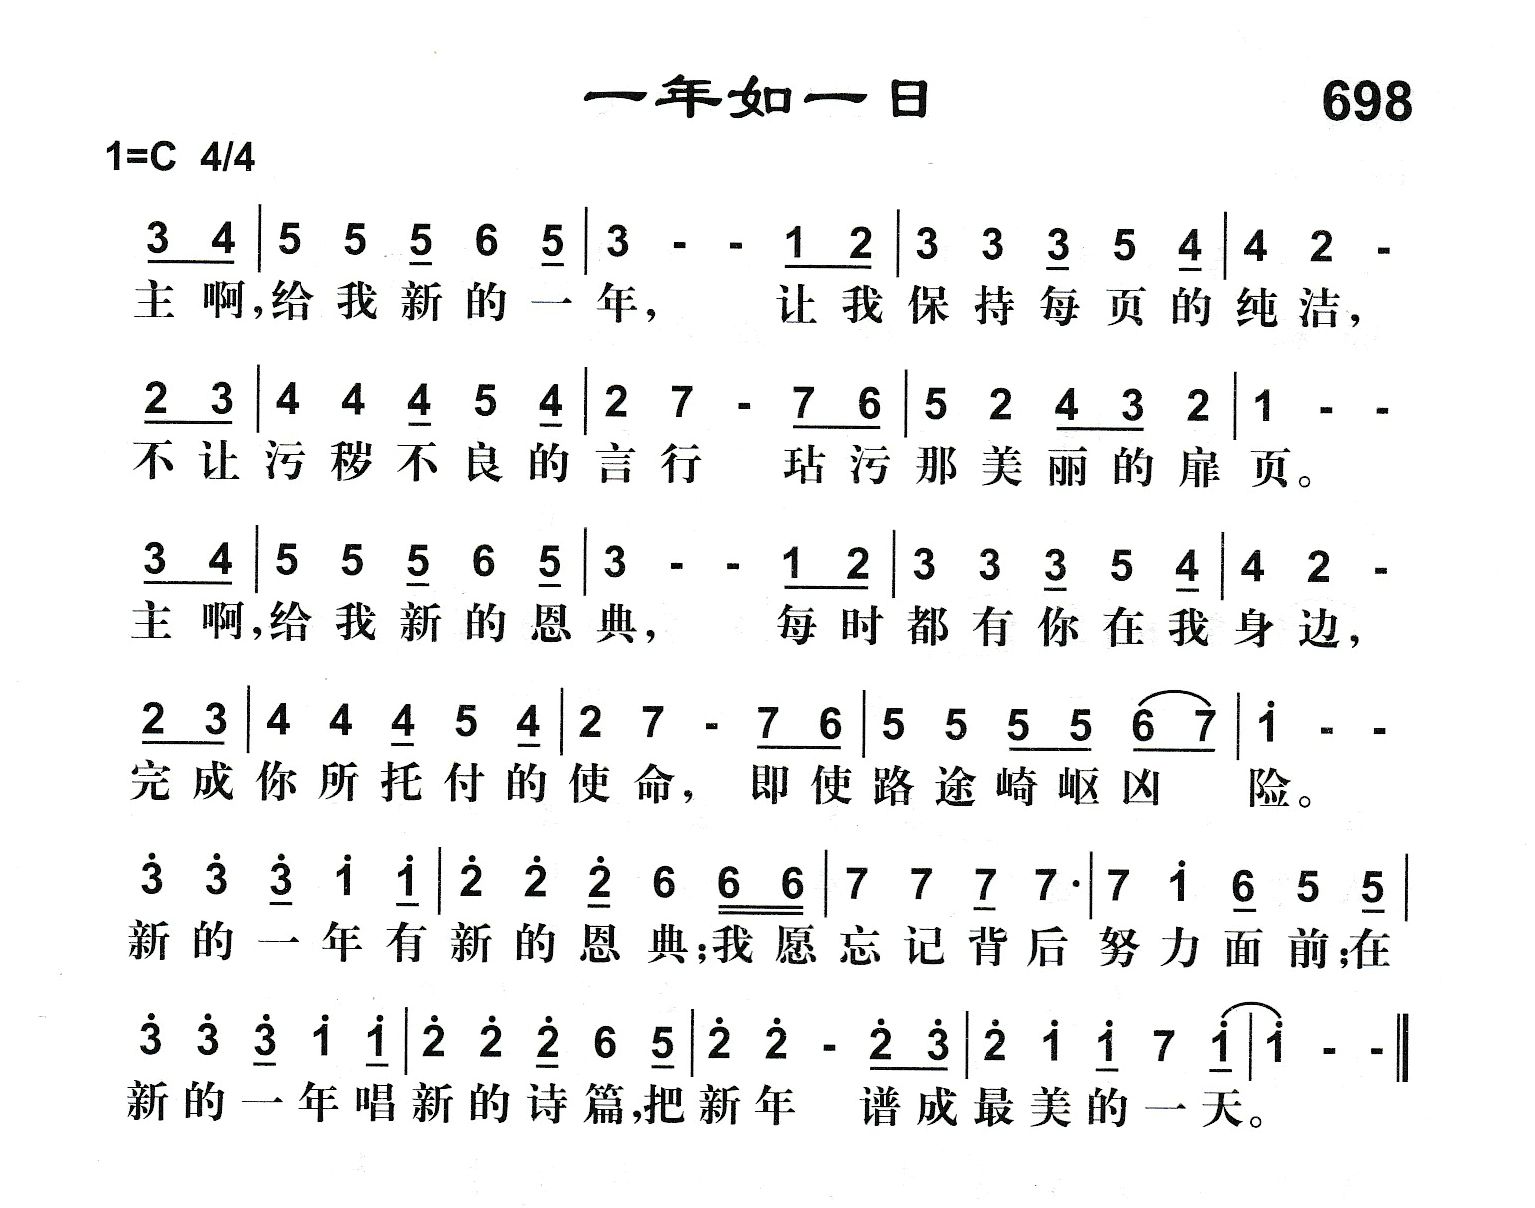 一年如一日 698
1=C 4/4
3 4 | 5 5 5 6 5 | 3 - - 1 2 | 3 3 3 5 4 | 4 2 -
主啊,给我新的一年, 让我保持每页的纯洁,
2 3 | 4 4 4 5 4 | 2 7 - 7 6 | 5 2 4 3 2 | 1 - -
不让污秽不良的言行 玷污那美丽的扉页。
3 4 | 5 5 5 6 5 | 3 - - 1 2 | 3 3 3 5 4 | 4 2 -
主啊,给我新的恩典, 每时都有你在我身边,
2 3 | 4 4 4 5 4 | 2 7 - 7 6 | 5 5 5 5 6 7 | 1 - -
完成你所托付的使命, 即使路途崎岖凶 险。
3 3 3 1 1 | 2 2 2 6 6 6 | 7 7 7 7· | 7 1 6 5 5 |
新的一年有新的恩典;我愿忘记背后努力面前;在
3 3 3 1 1 | 2 2 2 6 5 | 2 2 - 2 3 | 2 1 1 7 1 | 1 - - ‖
新的一年唱新的诗篇,把新年 谱成最美的一天。